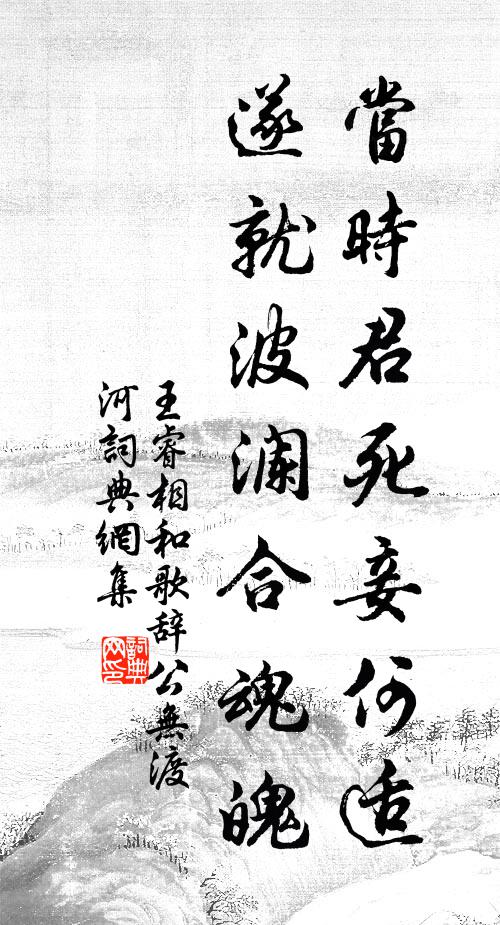 當時君死妾何适
遂就波瀾合魂魄
王睿相和歌辞公無渡
河詞典網集
詞典网印